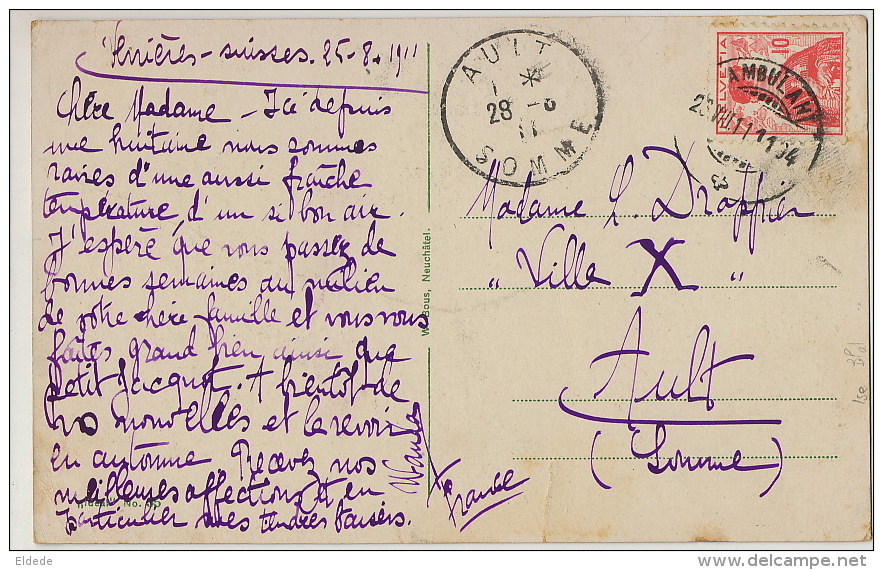 Verrières-suisses. 25-8-1911
Chère Madame - Ici depuis
une huitaine nous sommes
ravies d'une aussi fraîche
température, d'un si bon air.
J'espère que vous passez de
bonnes semaines au milieu
de votre chère famille et vous vous
faites grand bien ainsi que
petit Jacquot. A bientôt de
vos nouvelles et le revoir
en automne Recevez nos
meilleures affections et en
particulier mes tendres baisers.
Wanda
No. 35
W. Bous, Neuchâtel.
AULT
28 - 8
11
SOMME
HELVETIA
10
AMBULANT
Madame L. Drapprier
" Ville X "
Ault
(Somme)
France
Eldede
delcampe.net